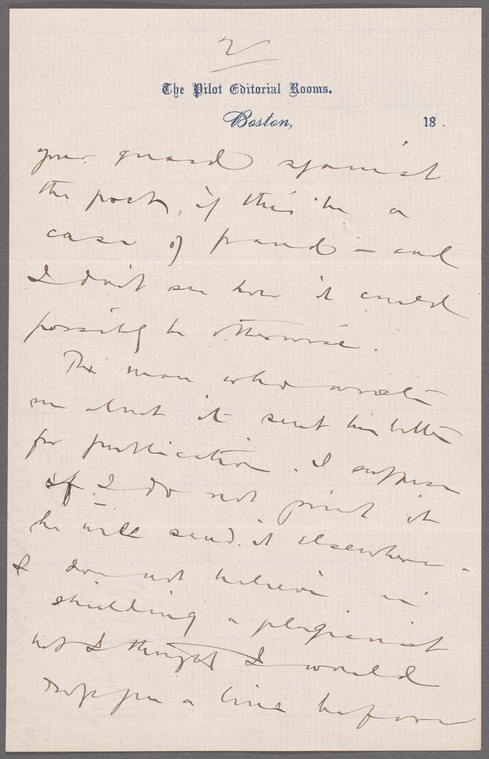 2
The Pilot Editorial Rooms.
Boston, 18 .
your guard against
the poet, if this be a
case of fraud — and
I don't see how it could
possibly be otherwise.
The man who wrote
me about it sent his letter
for publication. I suppose
if I do not print it
he will send it elsewhere.
I do not believe in
shielding a plagiarist
but I thought I would
drop you a line before